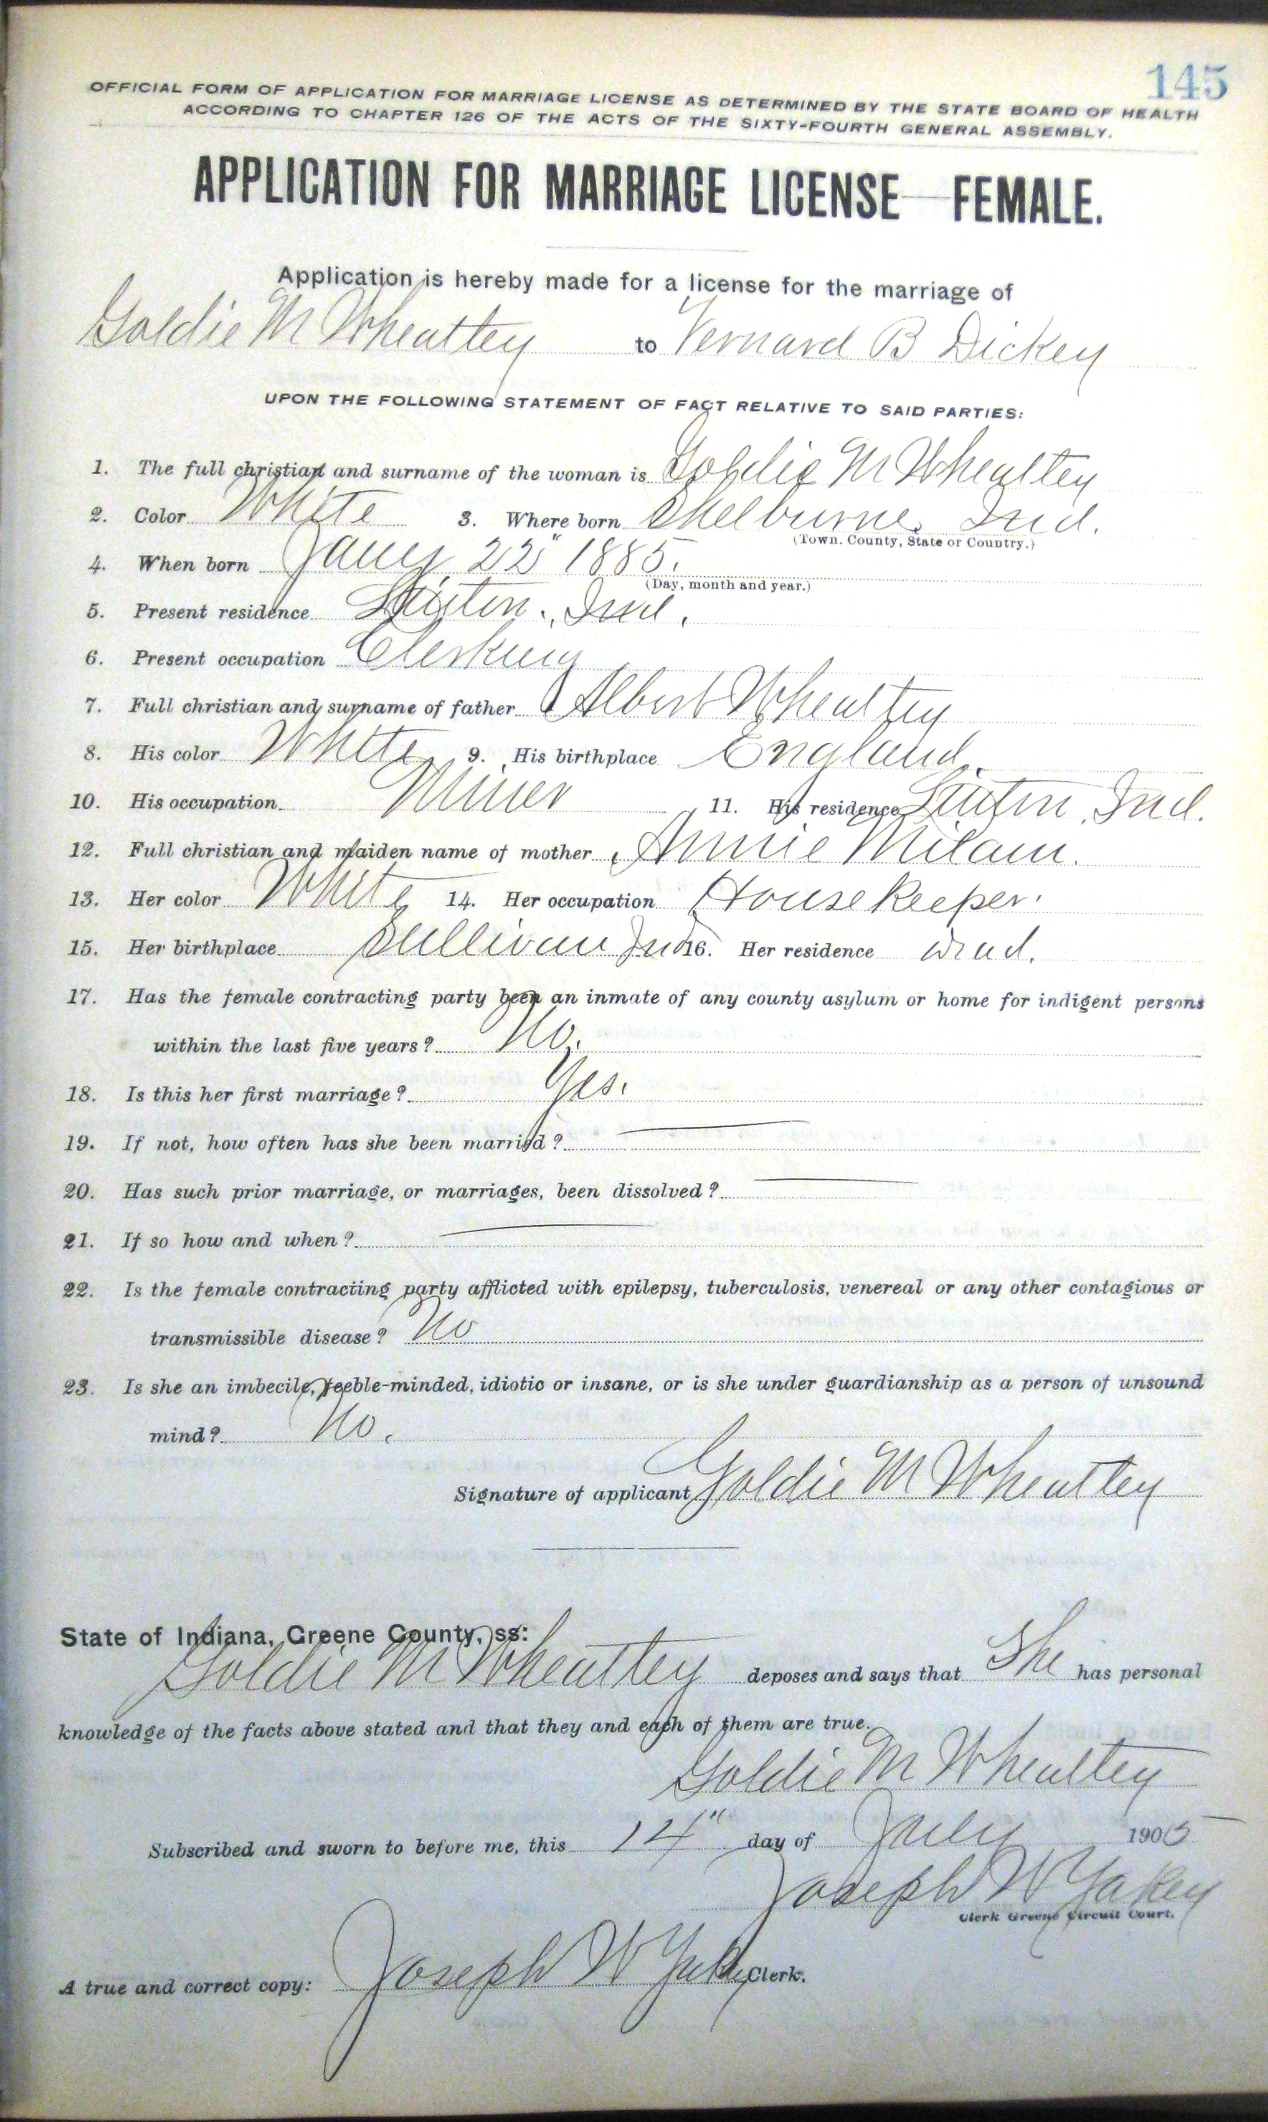 145
OFFICIAL FORM OF APPLICATION FOR MARRIAGE LICENSE AS DETERMINED BY THE STATE BOARD OF HEALTH
ACCORDING TO CHAPTER 126 OF THE ACTS OF THE SIXTY-FOURTH GENERAL ASSEMBLY.
APPLICATION FOR MARRIAGE LICENSE—FEMALE.
Application is hereby made for a license for the marriage of
Goldie M Wheatley to Vernard B Dickey
UPON THE FOLLOWING STATEMENT OF FACT RELATIVE TO SAID PARTIES:
1. The full christian and surname of the woman is Goldie M Wheatley
2. Color White 3. Where born Shelburne, Ind.
(Town, County, State or Country.)
4. When born Jany 22" 1885.
(Day, month and year.)
5. Present residence Linton, Ind.
6. Present occupation Clerking
7. Full christian and surname of father Albert Wheatley
8. His color White 9. His birthplace England.
10. His occupation Miner 11. His residence Linton, Ind.
12. Full christian and maiden name of mother Annie Milam.
13. Her color White 14. Her occupation House Keeper.
15. Her birthplace Sullivan Ind 16. Her residence Dead.
17. Has the female contracting party been an inmate of any county asylum or home for indigent persons
within the last five years? No.
18. Is this her first marriage? Yes.
19. If not, how often has she been married?
20. Has such prior marriage, or marriages, been dissolved?
21. If so how and when?
22. Is the female contracting party afflicted with epilepsy, tuberculosis, venereal or any other contagious or
transmissible disease? No
23. Is she an imbecile, feeble-minded, idiotic or insane, or is she under guardianship as a person of unsound
mind? No.
Signature of applicant Goldie M Wheatley
State of Indiana, Greene County, ss:
Goldie M Wheatley deposes and says that She has personal
knowledge of the facts above stated and that they and each of them are true.
Goldie M Wheatley
Subscribed and sworn to before me, this 14" day of July 1905
Joseph W Yakey
Clerk Greene Circuit Court.
A true and correct copy: Joseph W Yakey Clerk.